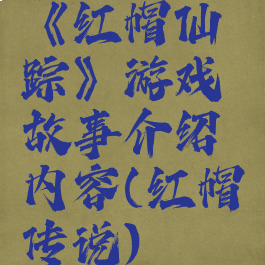 《红帽仙
踪》游戏
故事介绍
内容(红帽
传说)